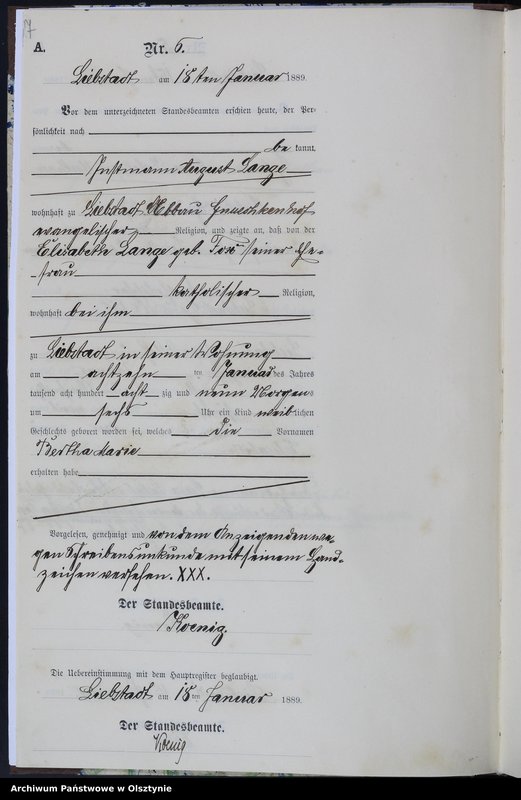 17
A.
Nr. 6.
Liebstadt am 18ten Januar 1889.
Vor dem unterzeichneten Standesbeamten erschien heute, der Per-
sönlichkeit nach
be kannt,
Instmann August Lange
wohnhaft zu Liebstadt Abbau
evangelischer Religion, und zeigte an, daß von der
Elisabeth Lange geb. seiner Ehe-
frau
katholischer Religion,
wohnhaft bei ihm
zu Liebstadt in seiner Wohnung
am achtzehn ten Januar des Jahres
tausend acht hundert acht zig und neun Morgens
um sechs Uhr ein Kind weiblichen
Geschlechts geboren worden sei, welches die Vornamen
Bertha Marie
erhalten habe
Vorgelesen, genehmigt und von dem Anzeigenden we-
gen Schreibensunkunde mit seinem Hand-
zeichen versehen. XXX.
Der Standesbeamte.
Koenig.
Die Uebereinstimmung mit dem Hauptregister beglaubigt.
Liebstadt am 18 ten Januar 1889.
Der Standesbeamte.
Koenig
Archiwum Państwowe w Olsztynie